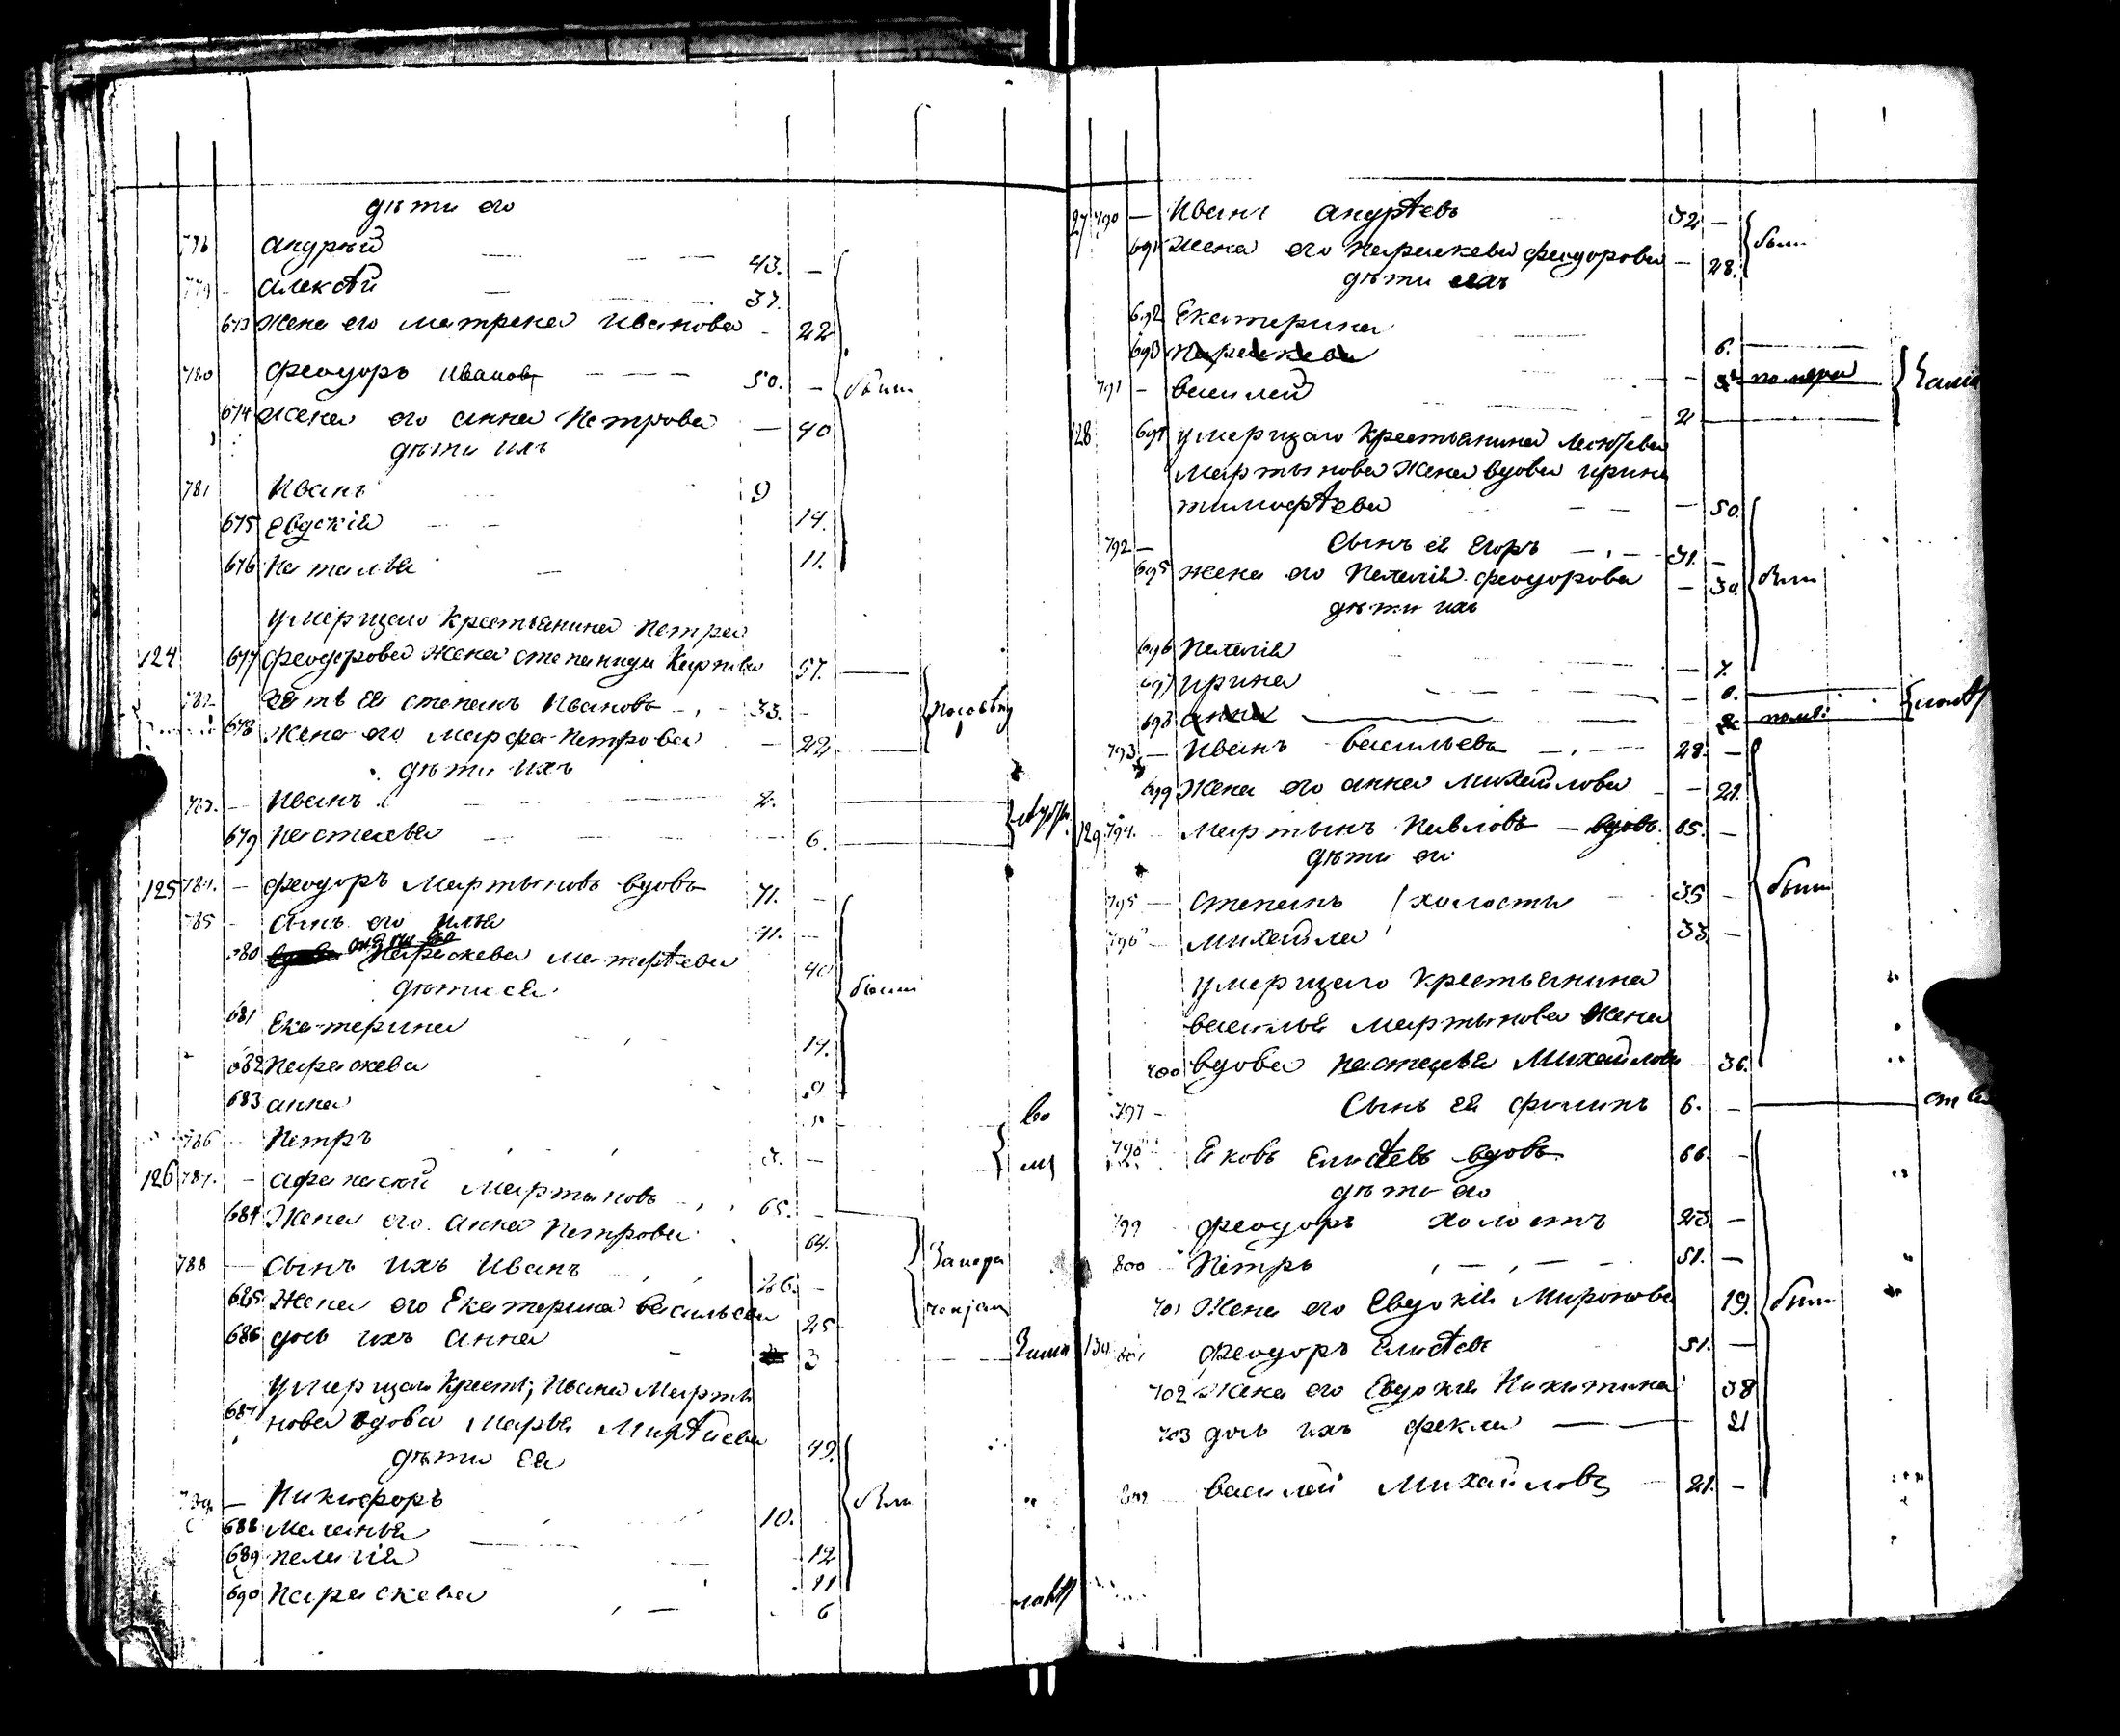 дѣти его
776 андрѣй 43. —
779 — алексѣй 37.
673 Жена его матрена Иванова — 22
780 феодоръ Ивановъ 50. — были
674 Жена его анна Петрова — 40
дѣти ихъ
781 Иванъ 9
675 евдокія 14.
676 наталья 11.
умершаго крестьянина Петра
124 677 феодорова жена степанида Карпова 57.
782 зять ея степанъ Ивановъ 33. —
678 Жена его марфа Петрова — 22
дѣти ихъ
783. — Иванъ 2.
679 настасья 6.
125 784. — феодоръ Мартыновъ вдовъ 71. —
785 — сынъ его илья 41. —
680 Параскева матвѣева 40
дѣти ея были
681 Екатерина 14.
682 Параскева 9
683 анна
786 — Петръ 3. —
126 787. — афанасій Мартыновъ 65. —
684 Жена его анна Петрова 64.
788 — Сынъ ихъ Иванъ 26. —
685 Жена его Екатерина васильева 25
686 дочь ихъ анна 3
умершаго крест; Ивана Марты
687 нова вдова Марья Матвѣева 49.
дѣти ея
789 — Никифоръ 10. были
688 меланья 12
689 пелагія 11
690 Параскева 6
127 790 — Иванъ андрѣевъ 32 — были
691 Жена его параскева феодорова — 28.
дѣти ихъ
692 Екатерина 6.
693 параскева — померла
791 — василей 2
128 694 умершаго крестьянина леонтья
мартынова жена вдова ирина
тимофѣева — 50.
792 — Сынъ ея Егоръ 31. —
695 жена его Пелагія феодорова — 30. были
дѣти ихъ
696 Пелагія — 7.
697 ирина —
698 анна — пом:
793 — Иванъ васильевъ 28. —
699 Жена его анна михайлова — 21.
129 794. Мартынъ Павловъ — вдовъ. 65. —
дѣти его
795 — степанъ холосты 35 — были
796 — михайла 33 —
умершаго крестьянина
василья мартынова жена
700 вдова настасья михайлова — 36.
797 — Сынъ ея филипъ 6. —
798 Яковъ елисѣевъ вдовъ. 66. —
дѣти его
799 феодоръ холостъ 23. —
800 Петръ 51. —
701 Жена его Евдокія миронова 19. были
130 801 феодоръ Елисѣевъ 51. —
702 Жена его Евдокія Никитина 38
703 дочь ихъ фекла 21
802 василей михайловъ — 21. —